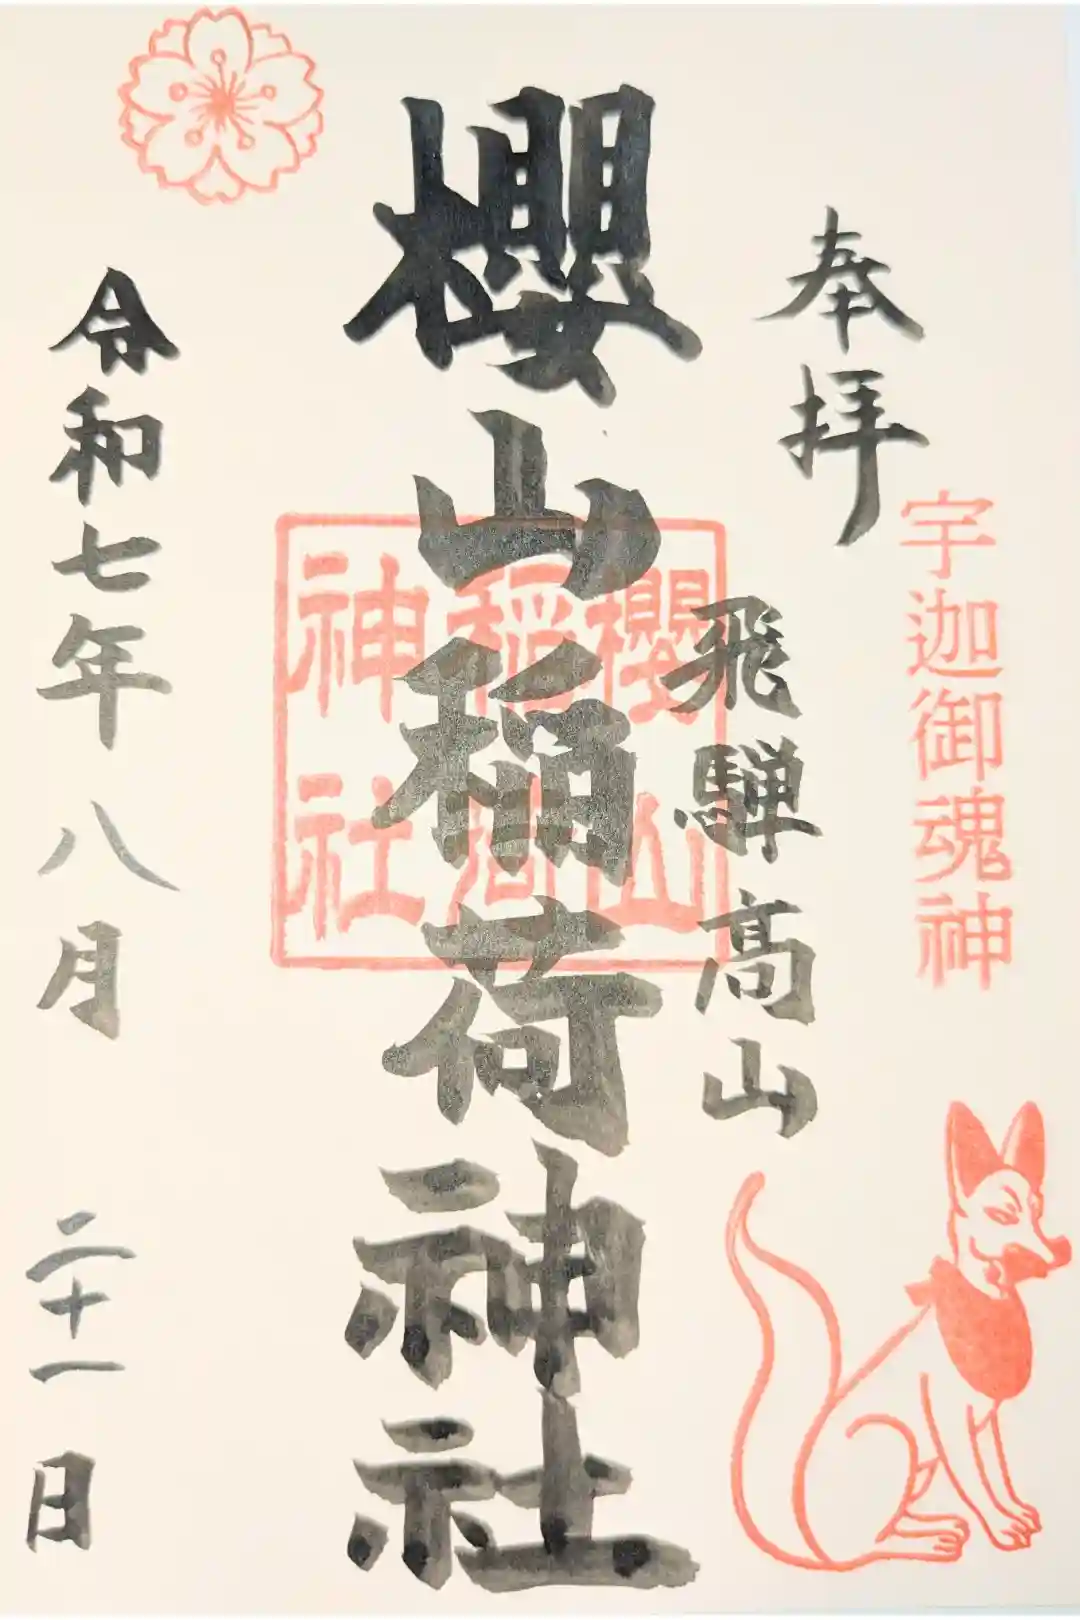 奉拝
宇迦御魂神
飛騨高山
櫻山稲荷神社
櫻山
稲荷
神社
令和七年八月二十一日